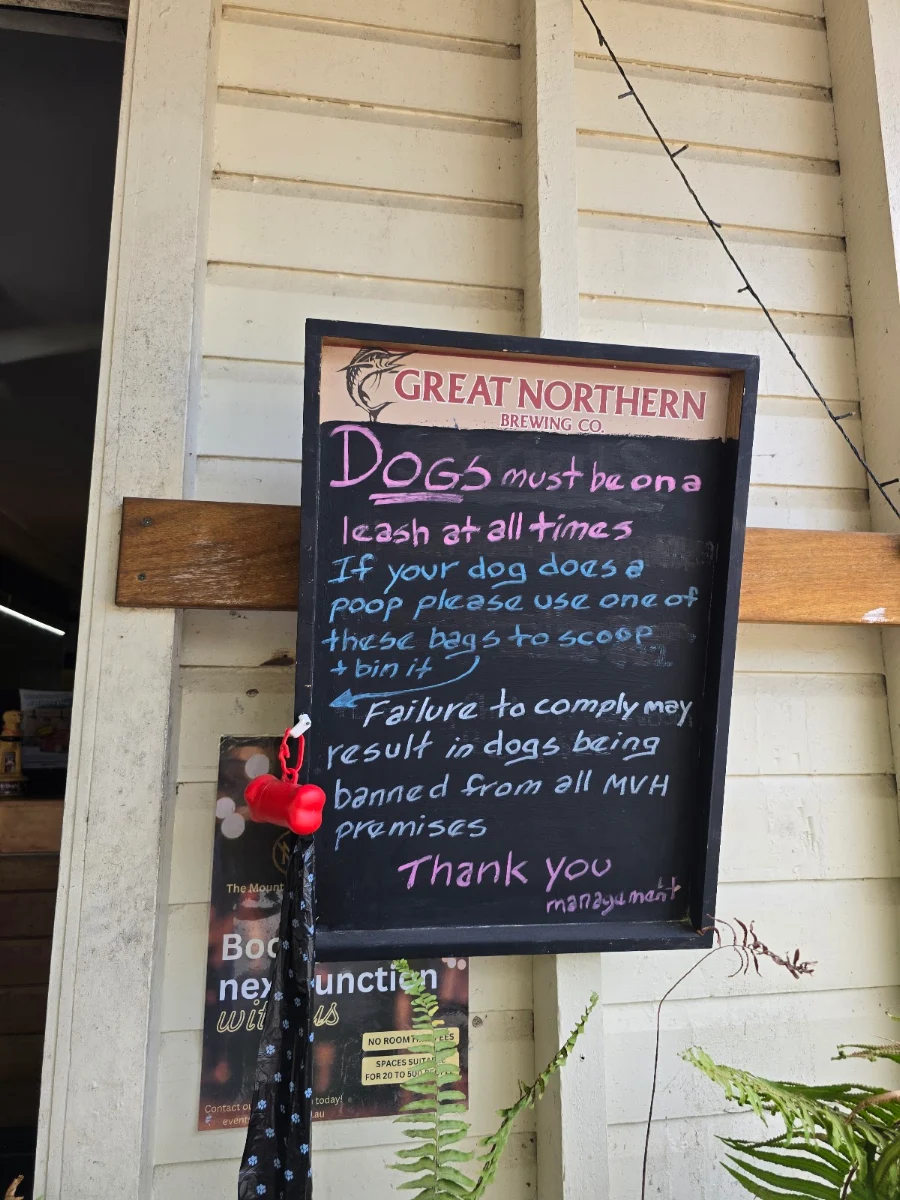 GREAT NORTHERN
BREWING CO.
DOGS must be on a
leash at all times
If your dog does a
poop please use one of
these bags to scoop
+ bin it
Failure to comply may
result in dogs being
banned from all MVH
premises
Thank you
management
The Mount
next function
with us
NO ROOM
SPACES
FOR 20 TO
Contact today!